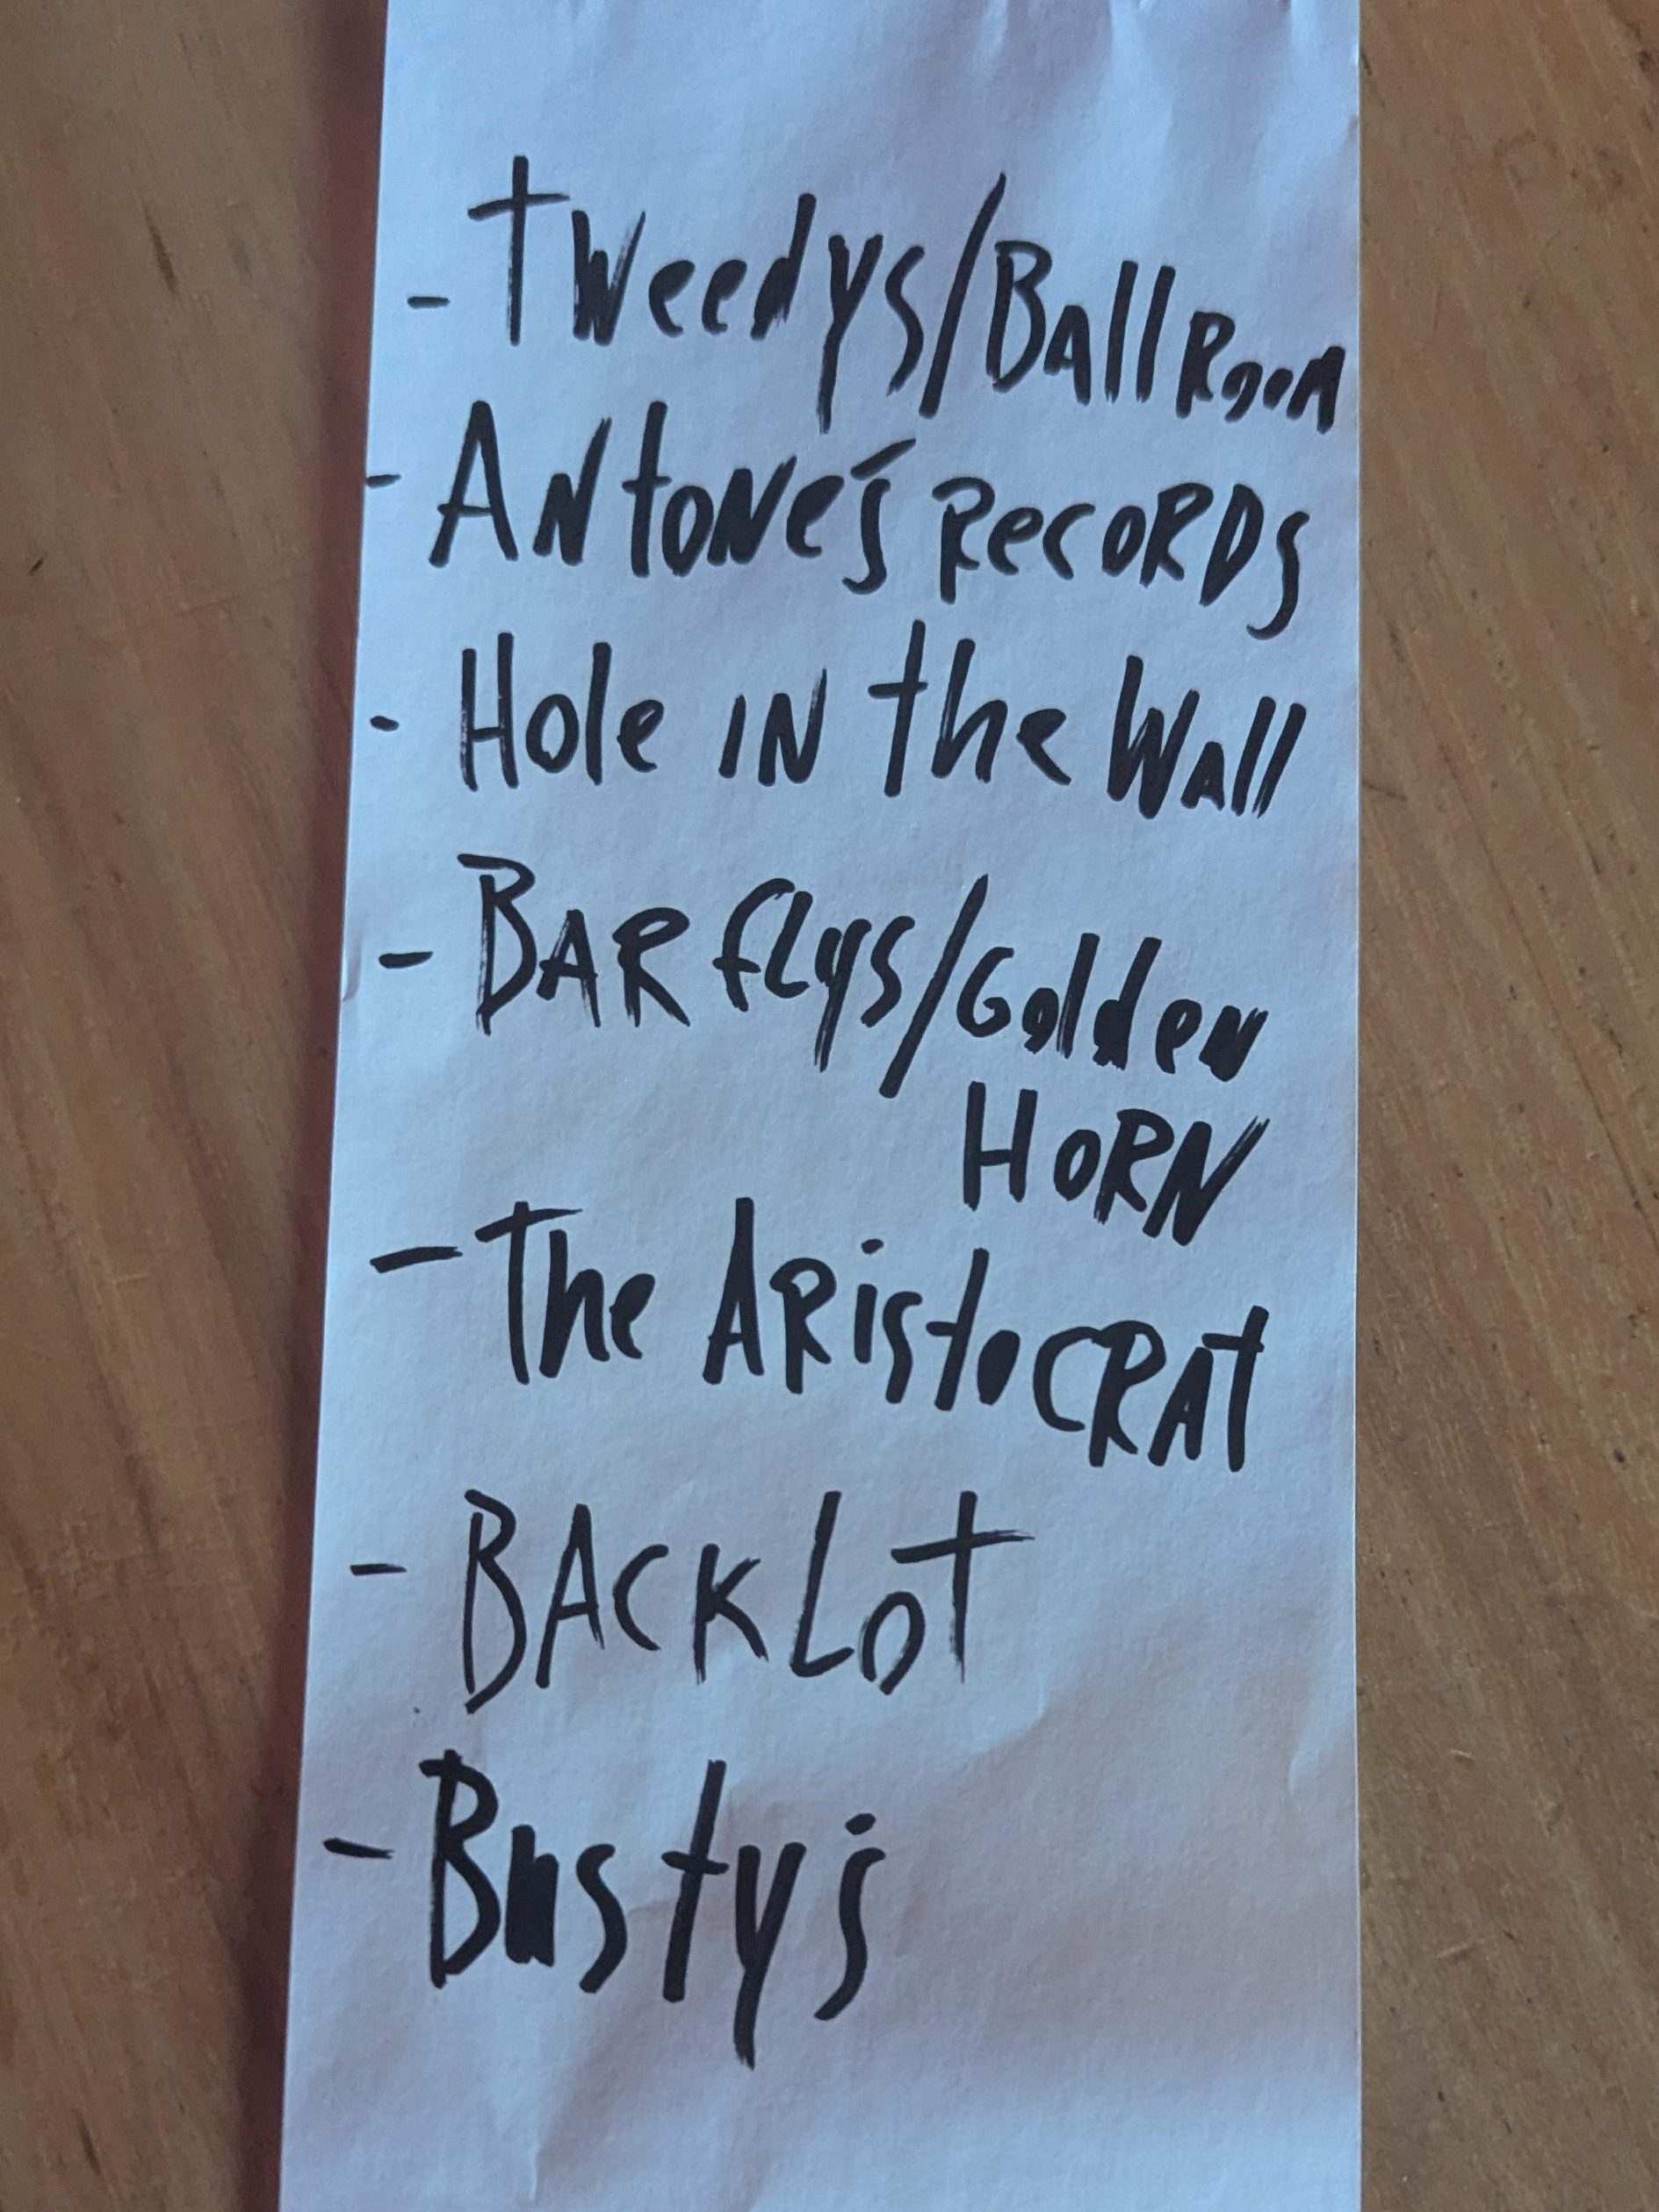 - Tweedys/Ballroom
- Antone's Records
- Hole in the Wall
- Bar flys/Golden
Horn
- The Aristocrat
- Back Lot
- Busty's